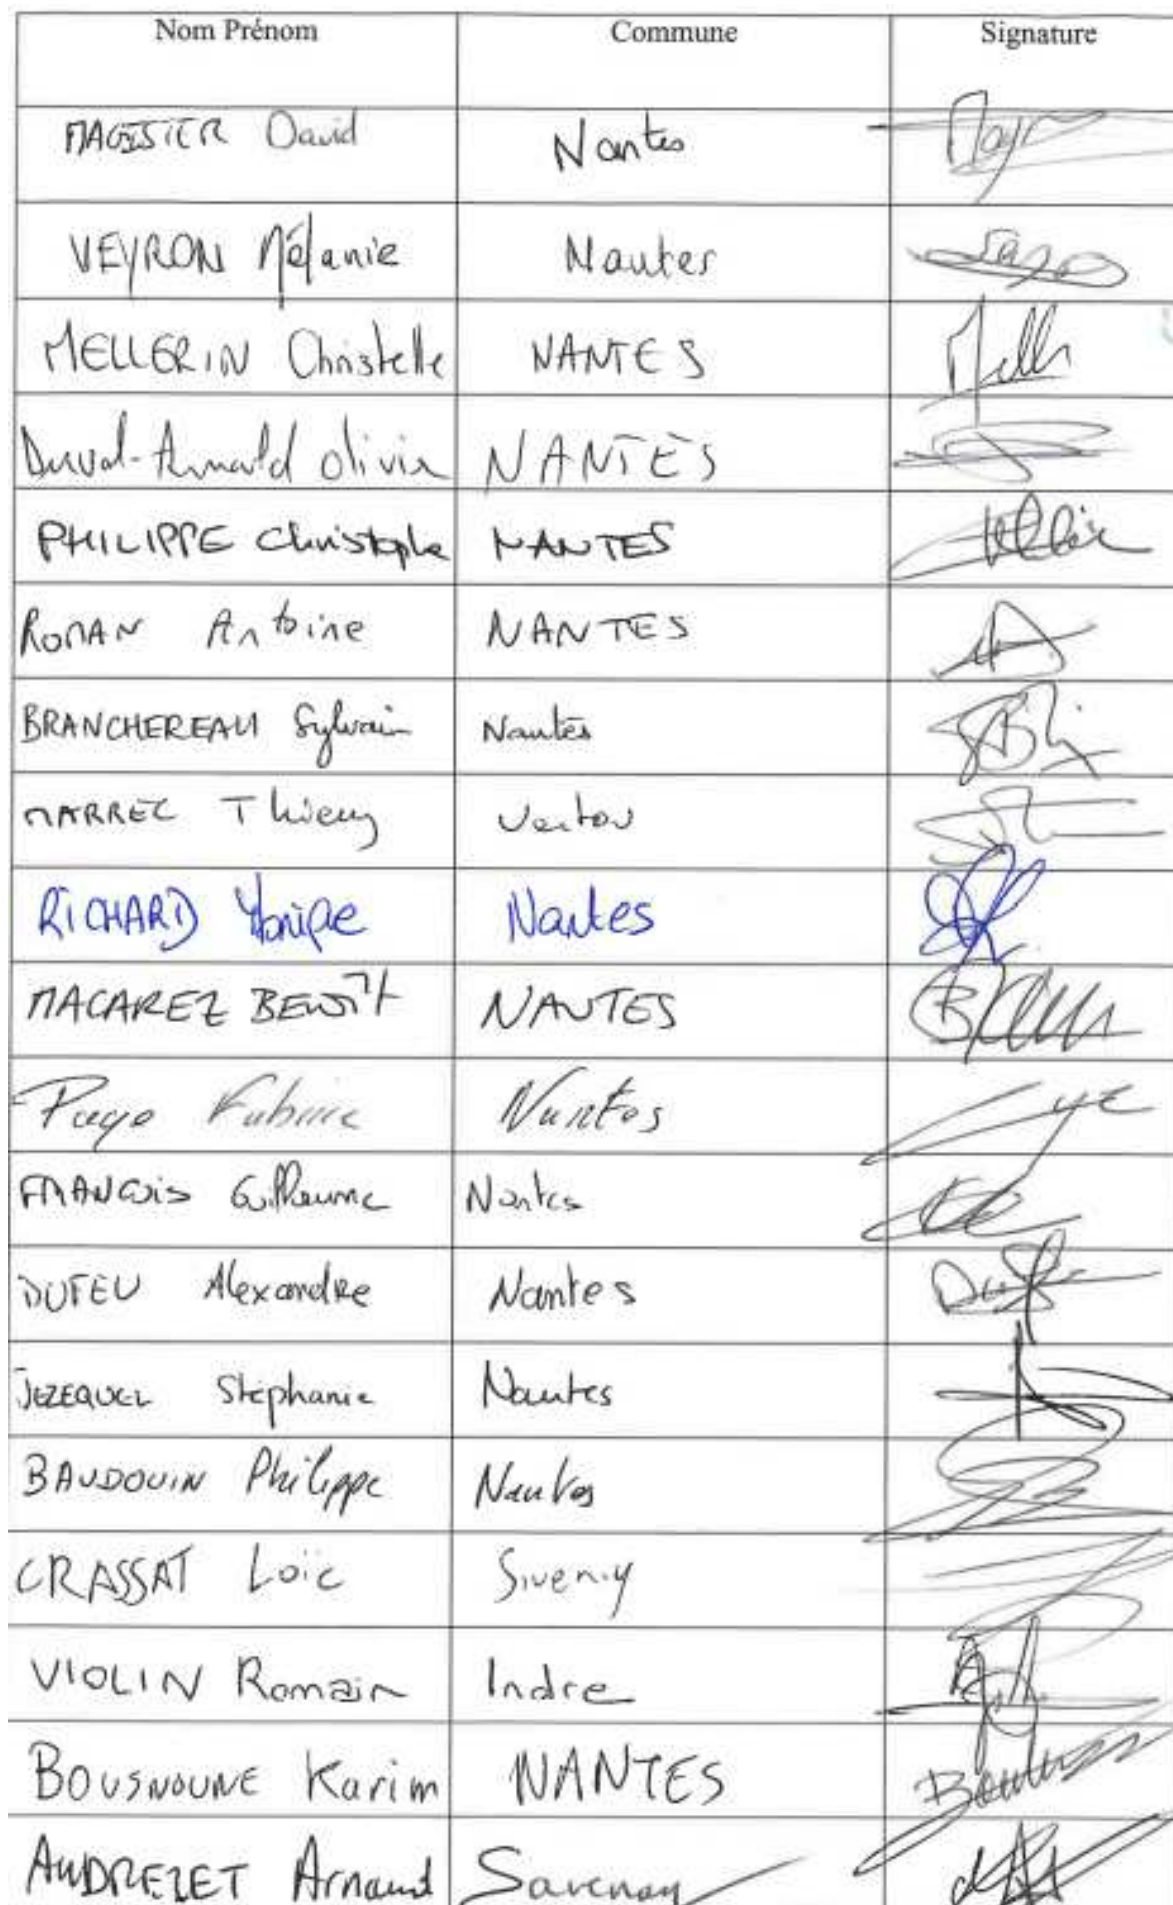 Nom Prénom Commune Signature
MAGISTER David Nantes
VEYRON Mélanie Nantes
MELLERIN Christelle NANTES
Duval-Arnould olivier NANTES
PHILIPPE Christophe NANTES
ROMAN Antoine NANTES
BRANCHEREAU Sylvain Nantes
MARREC Thierry Vertou
RICHARD Nantes
MACAREZ BENOÎT NANTES
Nantes
FRANÇOIS Guillaume Nantes
DUFEU Alexandre Nantes
JEZEQUEL Stéphanie Nantes
BAUDOUIN Philippe Nantes
CRASSAT Loïc
VIOLIN Romain Indre
BOUSNOUNE Karim NANTES
AUDREZET Arnaud Savenay